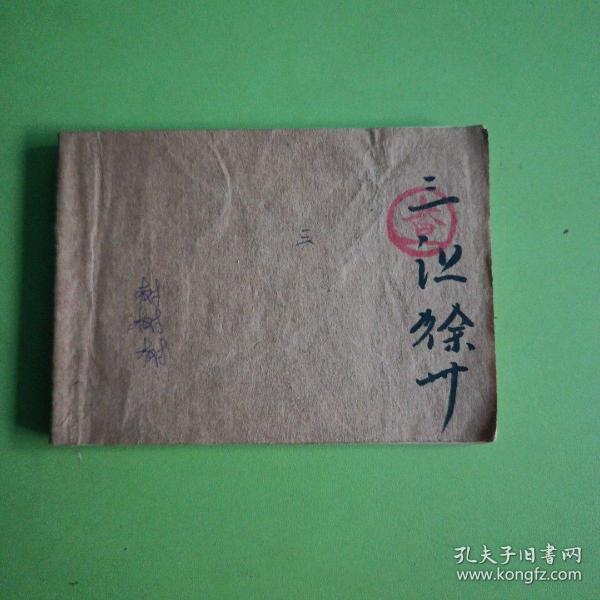 三让徐州
三
孔夫子旧書网
www.kongfz.com